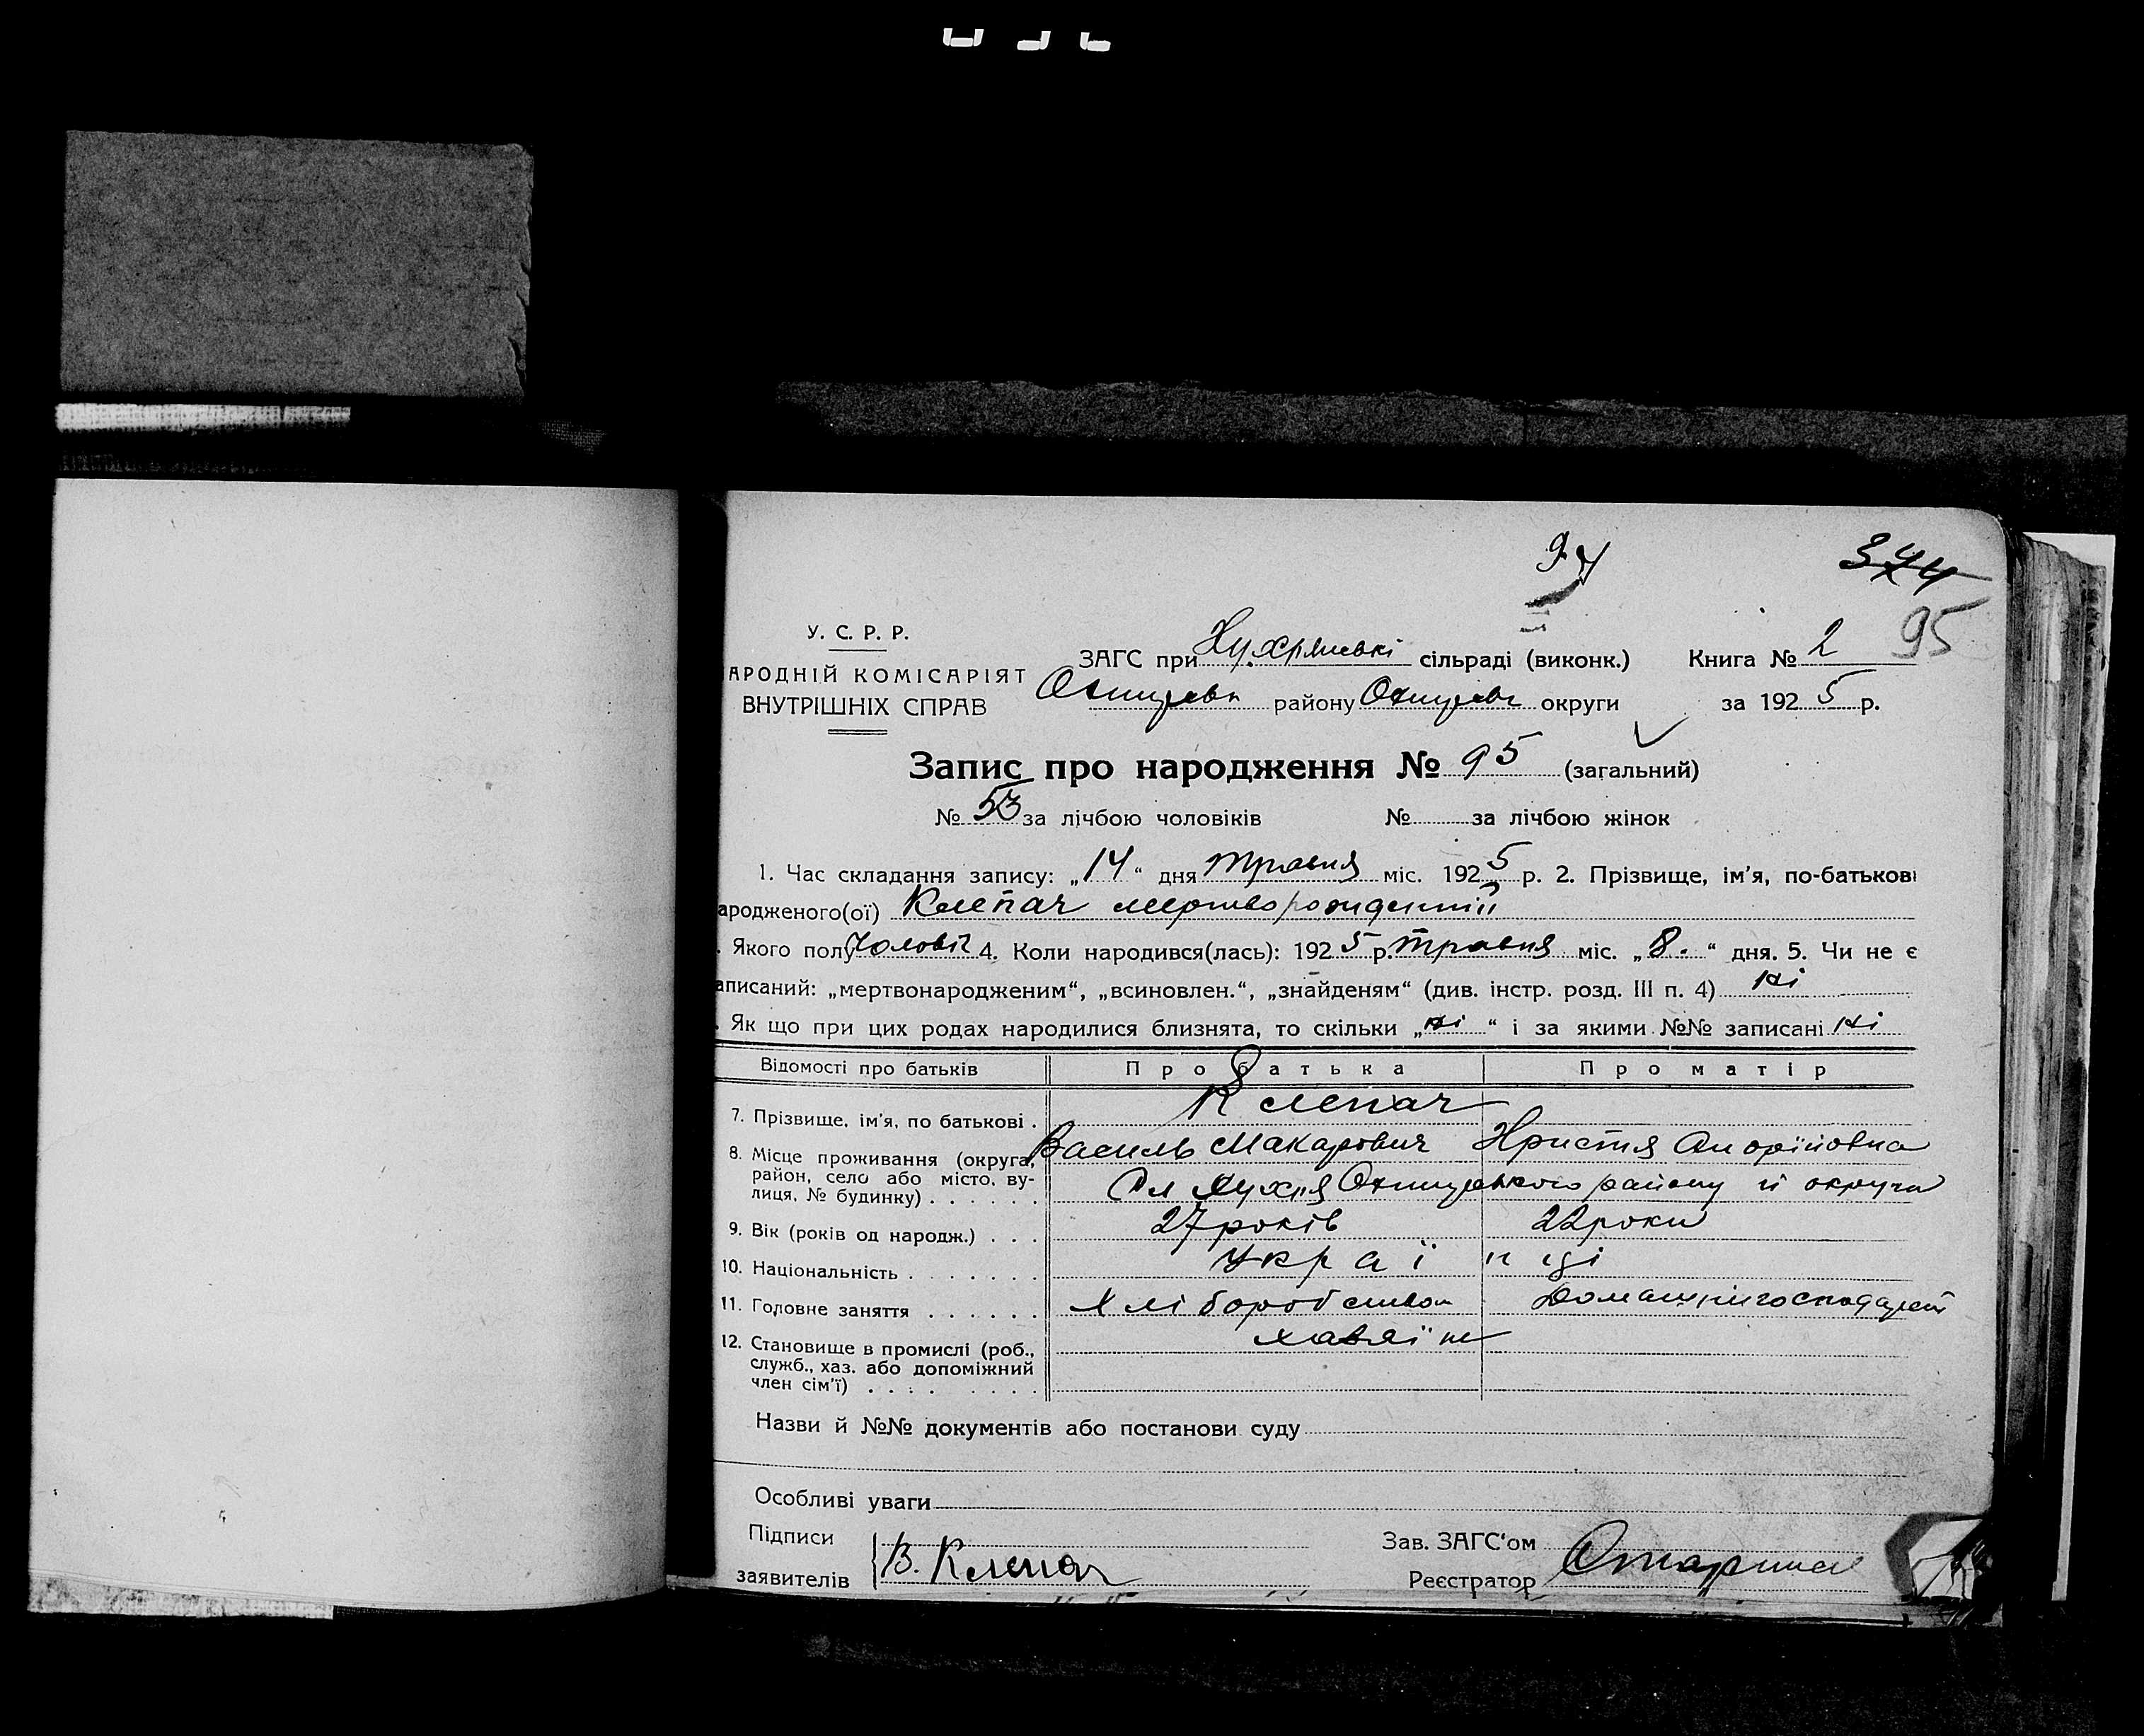 94
374
95
У. С. Р. Р.
АРОДНІЙ КОМІСАРІЯТ
ВНУТРІШНІХ СПРАВ
ЗАГС при сільраді (виконк.) Книга № 2
району округи за 1925 р.
Запис про народження № 95 (загальний)
№ 53 за лічбою чоловіків № за лічбою жінок
1. Час складання запису: „14“ дня травня міс. 1925 р. 2. Прізвище, ім'я, по-батькові
ародженого(ої) Клепач мертворожденний
. Якого полу Чоловіч 4. Коли народився(лась): 1925 р. травня міс. „8.“ дня. 5. Чи не є
аписаний: „мертвонародженим“, „всиновлен.“, „знайденям“ (див. інстр. розд. III п. 4) ні
. Як що при цих родах народилися близнята, то скільки „ні“ і за якими №№ записані ні
Відомості про батьків Про батька Про матір
7. Прізвище, ім'я, по батькові . Клепач
Василь Макарович Христя
8. Місце проживання (округа, район, село або місто, вулиця, № будинку) . . . . . . району й округи
9. Вік (років од народж.) . . . 27 років 22 роки
10. Національність . . . . . . . Українці
11. Головне заняття . . . . . . Хліборобством
12. Становище в промислі (роб., служб., хаз. або допоміжний член сім'ї) . . . . . . . .
Назви й №№ документів або постанови суду
Особливі уваги
Підписи
заявителів В. Клепач
Зав. ЗАГС'ом
Реєстратор